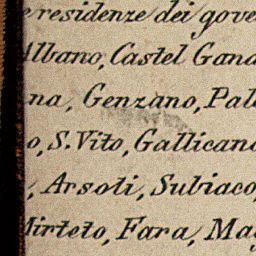 e residenze dei gove
Albano, Castel Gand
na, Genzano, Pal
o, S. Vito, Gallicano
, Arsoli, Subiaco,
Mirteto, Fara, Mag